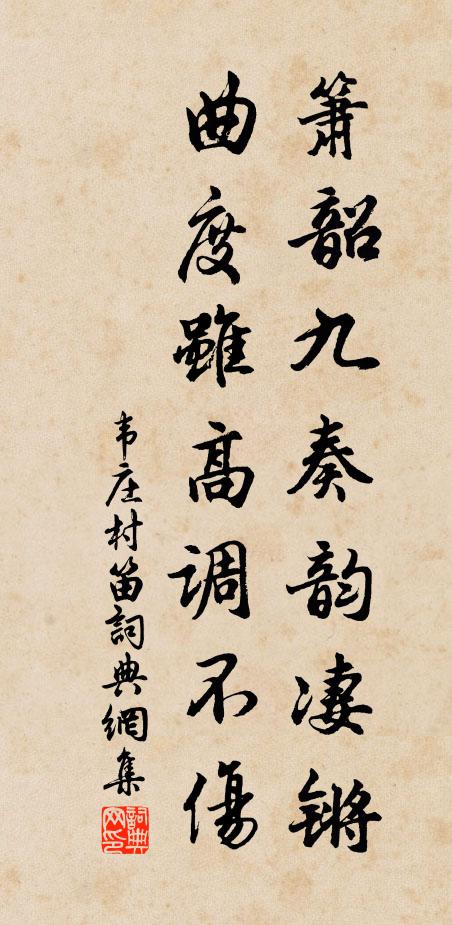 箫韶九奏韵凄锵
曲度雖高调不傷
韦庄村笛詞典網集
詞典网印